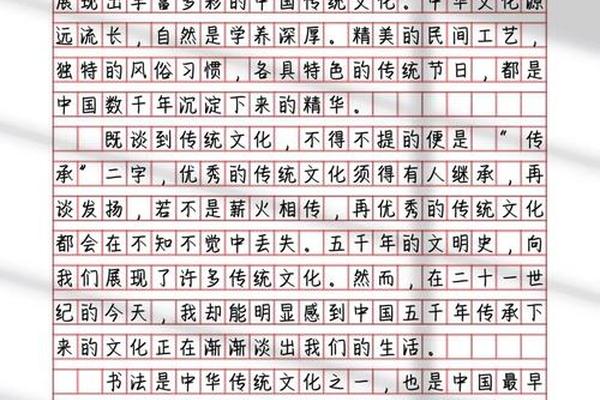 展现出丰富多彩的中国传统文化。中华文化源
远流长，自然是学养深厚。精美的民间工艺，
独特的风俗习惯，各具特色的传统节日，都是
中国数千年沉淀下来的精华。
既谈到传统文化，不得不提的便是“传
承”二字，优秀的传统文化须得有人继承，再
谈发扬，若不是薪火相传，再优秀的传统文化
都会在不知不觉中丢失。五千年的文明史，向
我们展现了许多传统文化。然而，在二十一世
纪的今天，我却能明显感到中国五千年传承下
来的文化正在渐渐淡出我们的生活。
书法是中华传统文化之一，也是中国最早